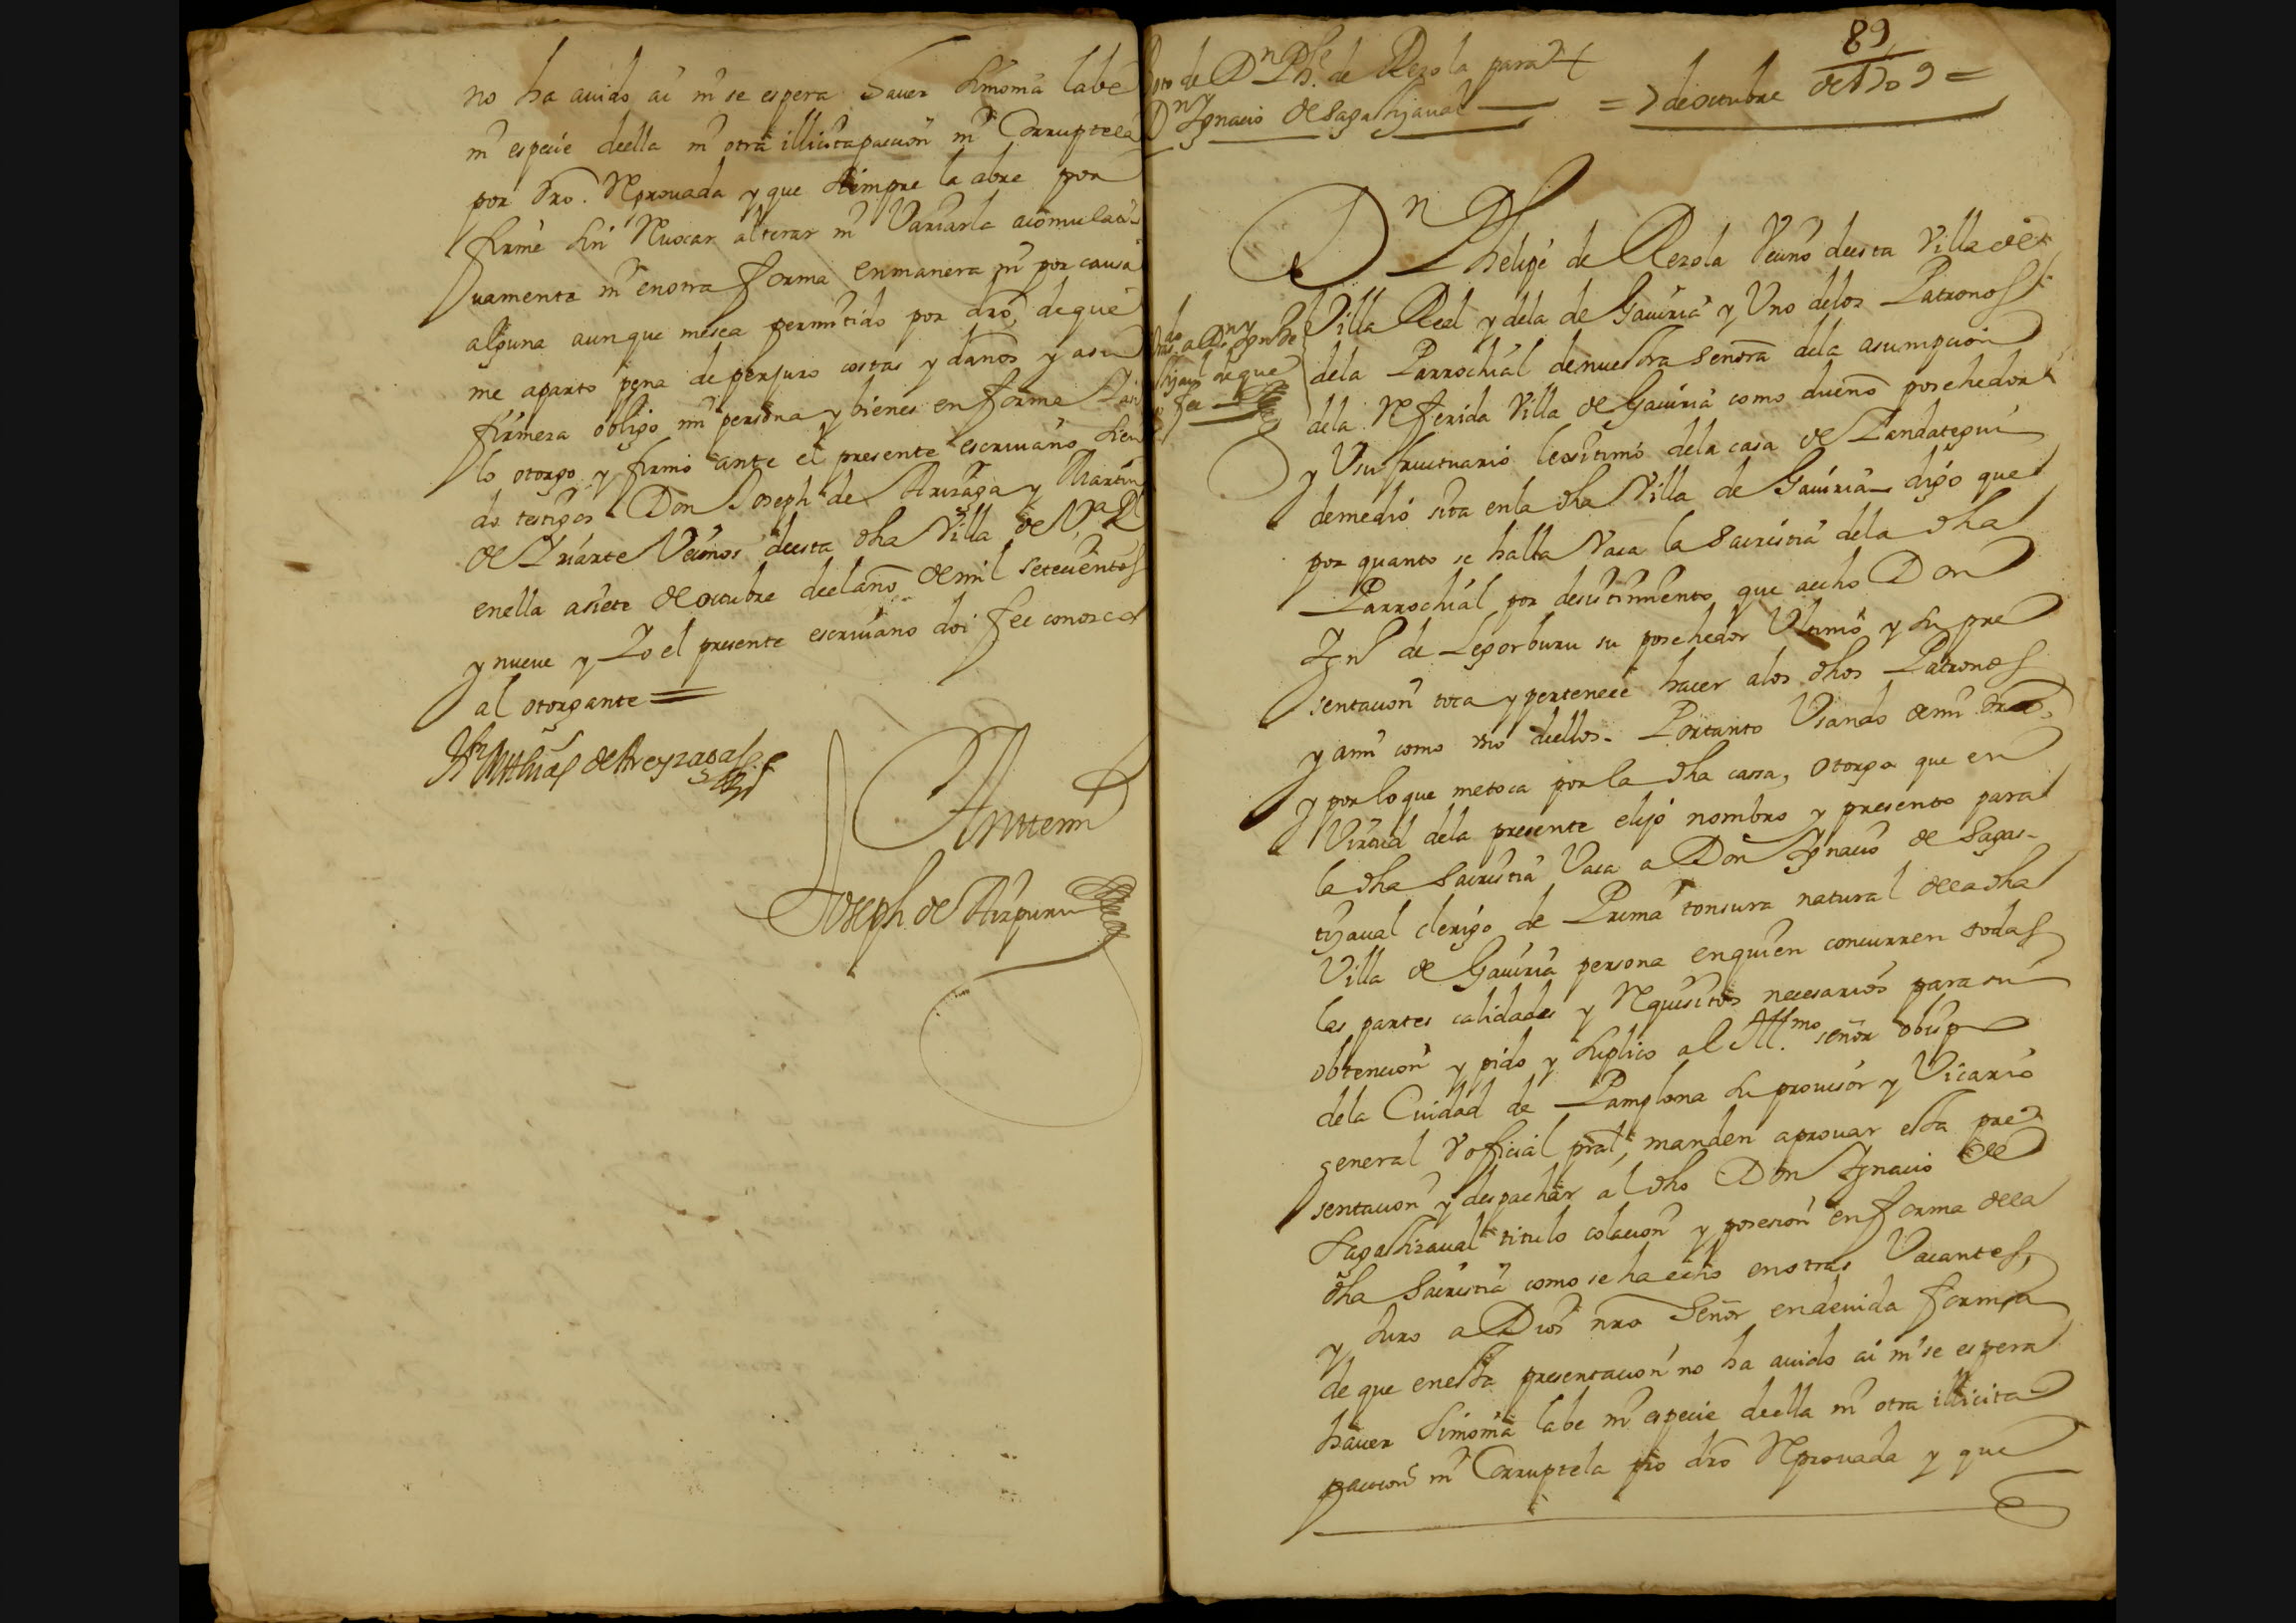 no ha auido ai ni se espera hauer simonia labe
ni especie deella ni otra illicita paccion ni Corruptela
por dro. Reprouada y que siempre la abre por
firme sin Reuocar alterar ni Variarla acomulati-
uamente ni en otra forma en manera ni por causa
alguna aunque mesea permitido por dro, de que
me aparto pena de perjuro costas y daños y a su
firmeza obligo mi persona y bienes en forma
lo otorgo y firmo ante el presente escriuano sien
do testigos Don Joseph de Arizaga y Martin
de Yriarte Vecinos deesta dha Villa de Va Rl
enella asiete de octubre deel año de mil setecientos
y nueue y Yo el presente escriuano doi fee conosco
al otorgante =
Mathias de Areyzaga
Antemi
Joseph de Aizpuru
89
de Dn Phe. de Rezola para
Dn Ygnacio de Sagastizaual = 7 de octubre de 1709 =
Dn Phelipe de Rezola Vecino deesta Villa de
Villa Real y dela de Gauiria y Uno delos Patronos
dela Parrochial denuestra señora dela asumpcion
dela Referida Villa de Gauiria como dueño posehedor
y Usufructuario lexitimo dela casa de Landategui
demedio sita enla dha Villa de Gauiria digo que
por quanto se halla Vaca la Sacristia dela dha
Parrochial por desistimiento que aecho Don
Ygno de Legorburu su posehedor Ultimo y su pre
sentacion toca y pertenece hacer alos dhos Patronos
y ami como uno deellos. Portanto Usando demi dro,
y por lo que metoca por la dha cassa, otorgo que en
Virtud dela presente elijo nombro y presento para
la dha Sacristia Vaca a Don Ygnacio de Sagas-
tizaual clerigo de Prima tonsura natural deela dha
Villa de Gauiria persona enquien concurren todas
las partes calidades y Requisitos necesarios para su
obtencion y pido y suplico al Illmo. señor obispo
dela Ciudad de Pamplona su prouisor y Vicario
general V oficial pral, manden aprouar esta pre
sentacion y despachar al dho Don Ygnacio de
Sagastizaual titulo colacion y posesion en forma deela
dha Sacristia como se ha echo en otras Vacantes,
y Juro a Dios nro Señor endeuida forma
de que enesta presentacion no ha auido ai ni se espera
hauer simonia labe ni especie deella ni otra illicita
paccion ni Corruptela pro dro Reprouada y que